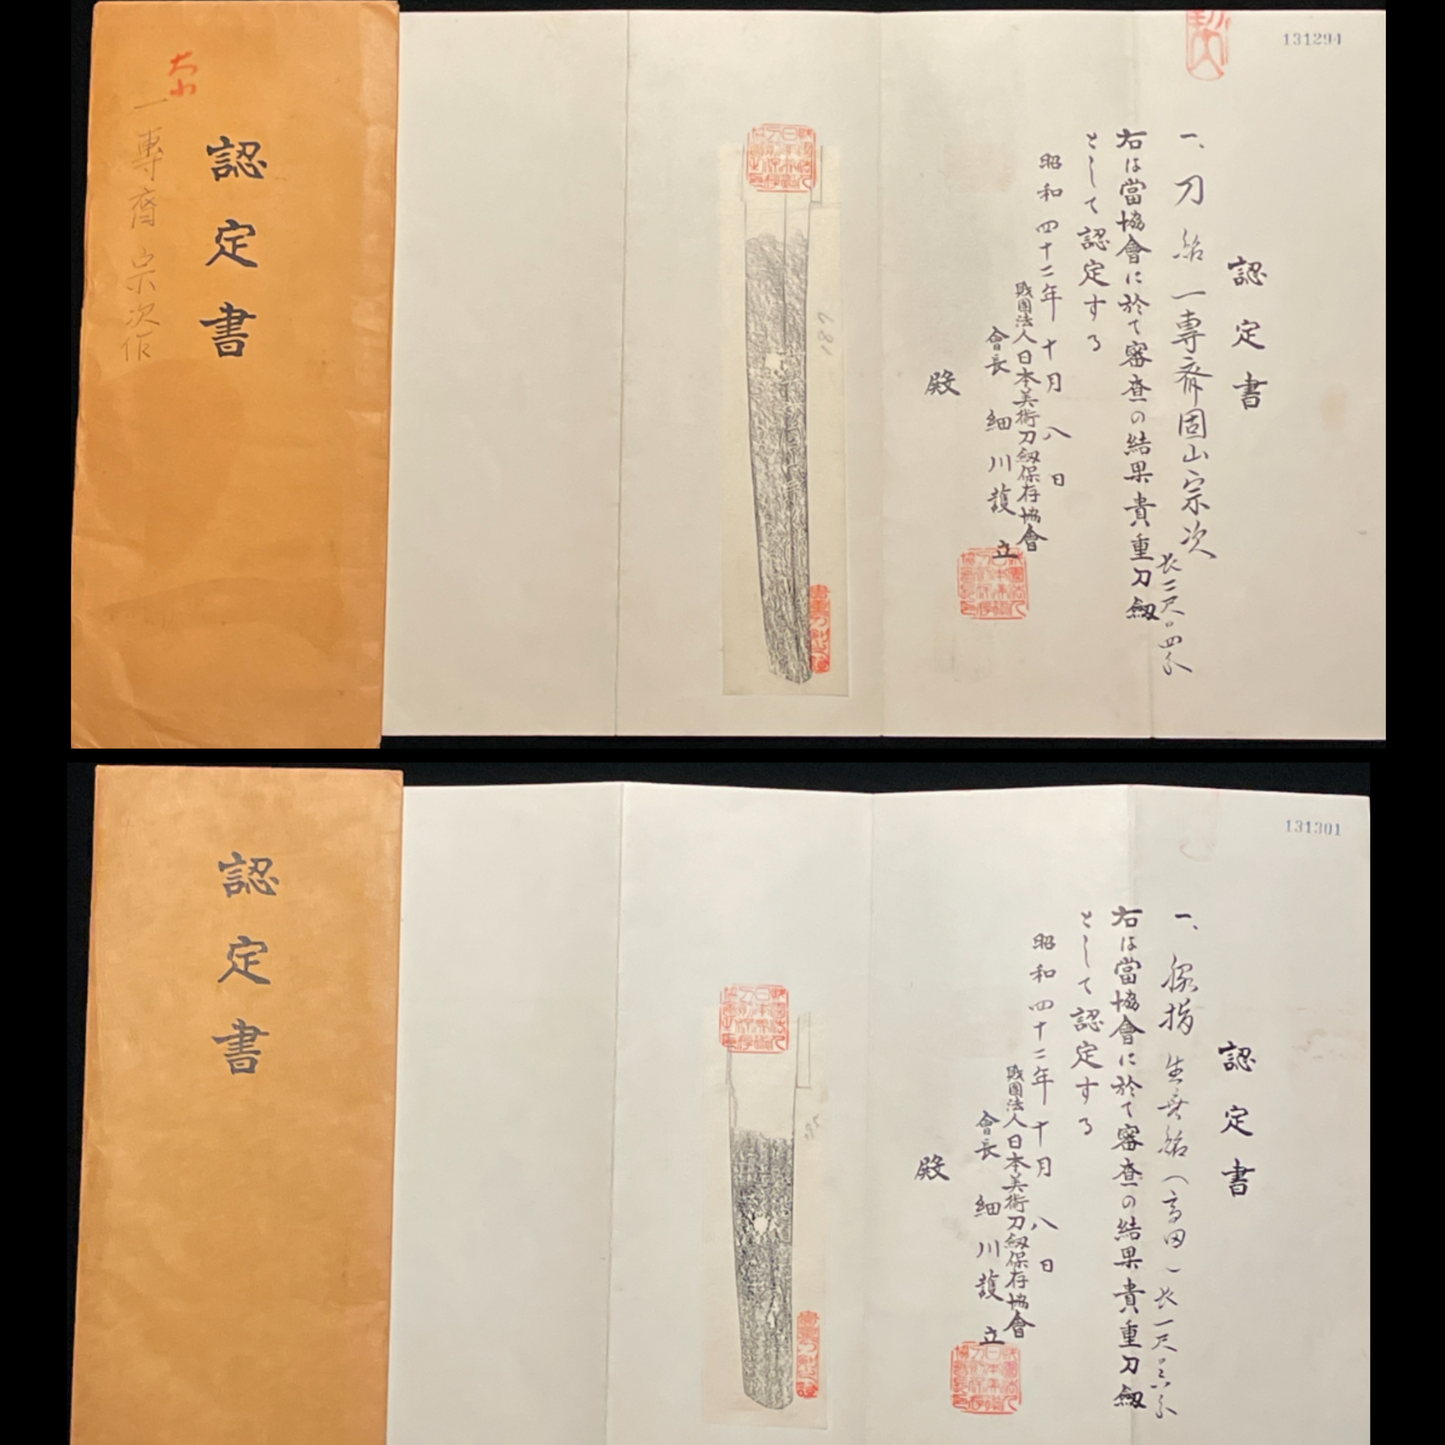 大小
認定書
一専斎宗次作
131294
認定書
一、刀 銘 一専斎固山宗次
長二尺〇四分
右は當協會に於て審査の結果貴重刀劔
として認定する
昭和四十二年十月八日
財團法人日本美術刀劔保存協會
會長 細川護立
殿
187
貴重刀剣之證
認定書
131301
認定書
一、脇指 生無銘（高田）長一尺〇六分
右は當協會に於て審査の結果貴重刀劔
として認定する
昭和四十二年十月八日
財團法人日本美術刀劔保存協會
會長 細川護立
殿
貴重刀剣之證